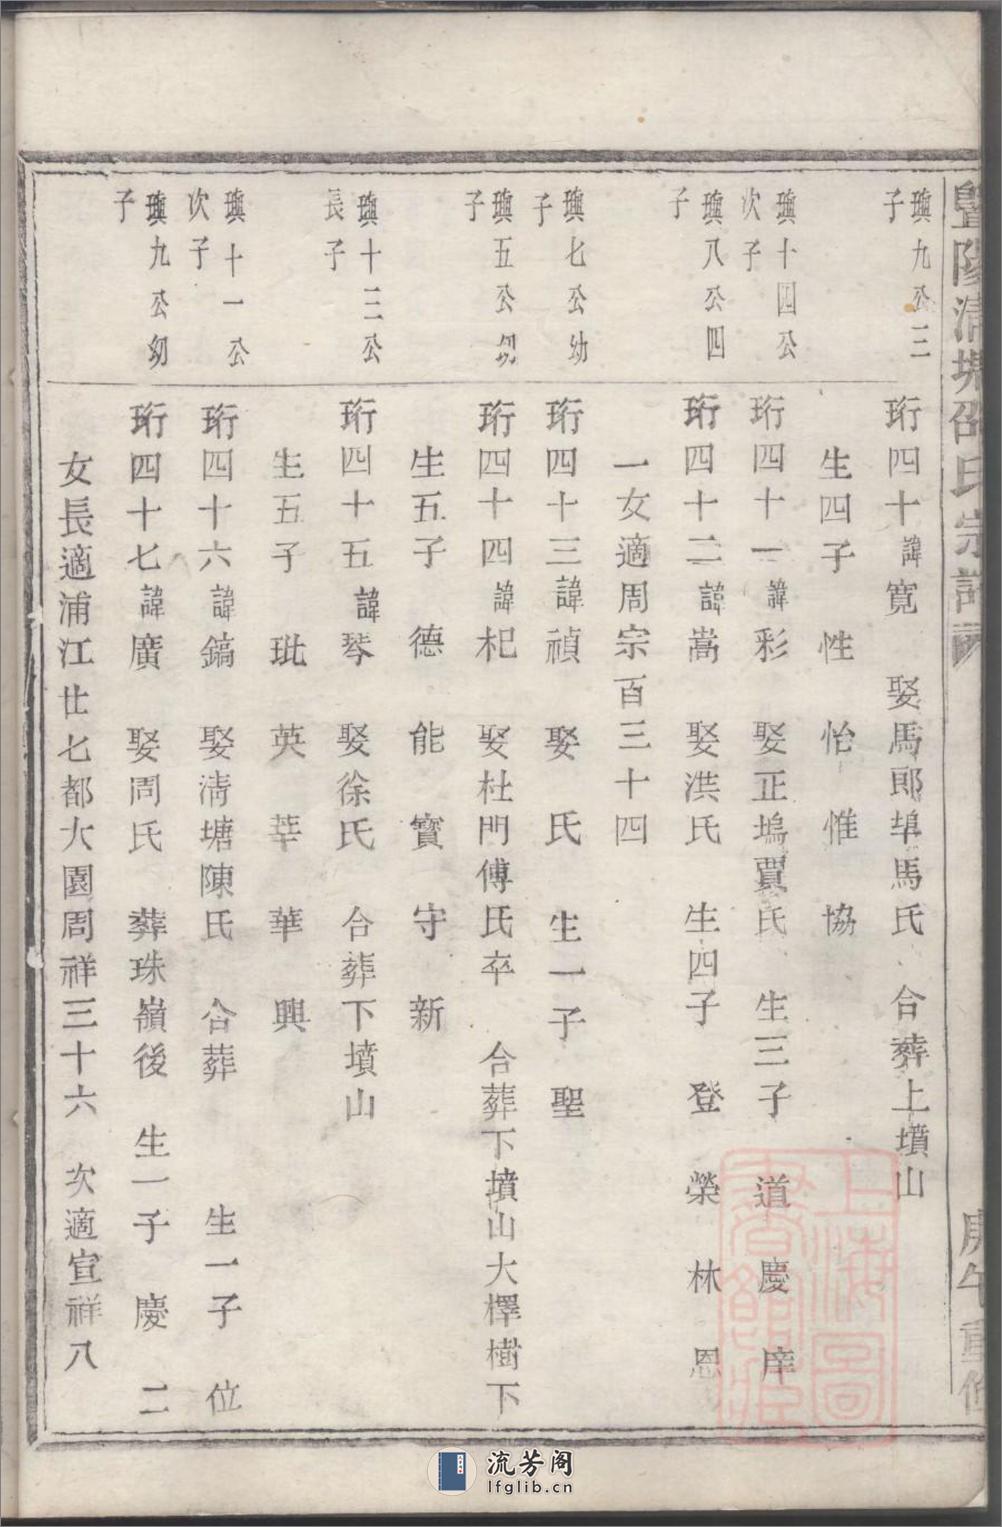 暨陽清塘邵氏宗譜
庚午重修
璵九公三子
珩四十諱寬 娶馬郎埠馬氏 合葬上墳山
生四子 性 怡 惟 協
璵十四公次子
珩四十一諱彩 娶正塢賈氏 生三子 道 慶 庠
璵八公四子
珩四十二諱嵩 娶洪氏 生四子 登 榮 林 恩
一女適周宗百三十四
璵七公幼子
珩四十三諱禎 娶 氏 生一子 聖
璵五公幼子
珩四十四諱杞 娶杜門傅氏卒 合葬下墳山大檡樹下
生五子 德 能 寳 守 新
璵十三公長子
珩四十五諱琴 娶徐氏 合葬下墳山
生五子 玭 英 莘 華 興
璵十一公次子
珩四十六諱鎬 娶清塘陳氏 合葬 生一子 位
璵九公幼子
珩四十七諱廣 娶周氏 葬珠嶺後 生一子 慶 二
女長適浦江廿七都大園周祥三十六 次適宣祥八
上海圖書館藏
流芳阁
lfglib.cn